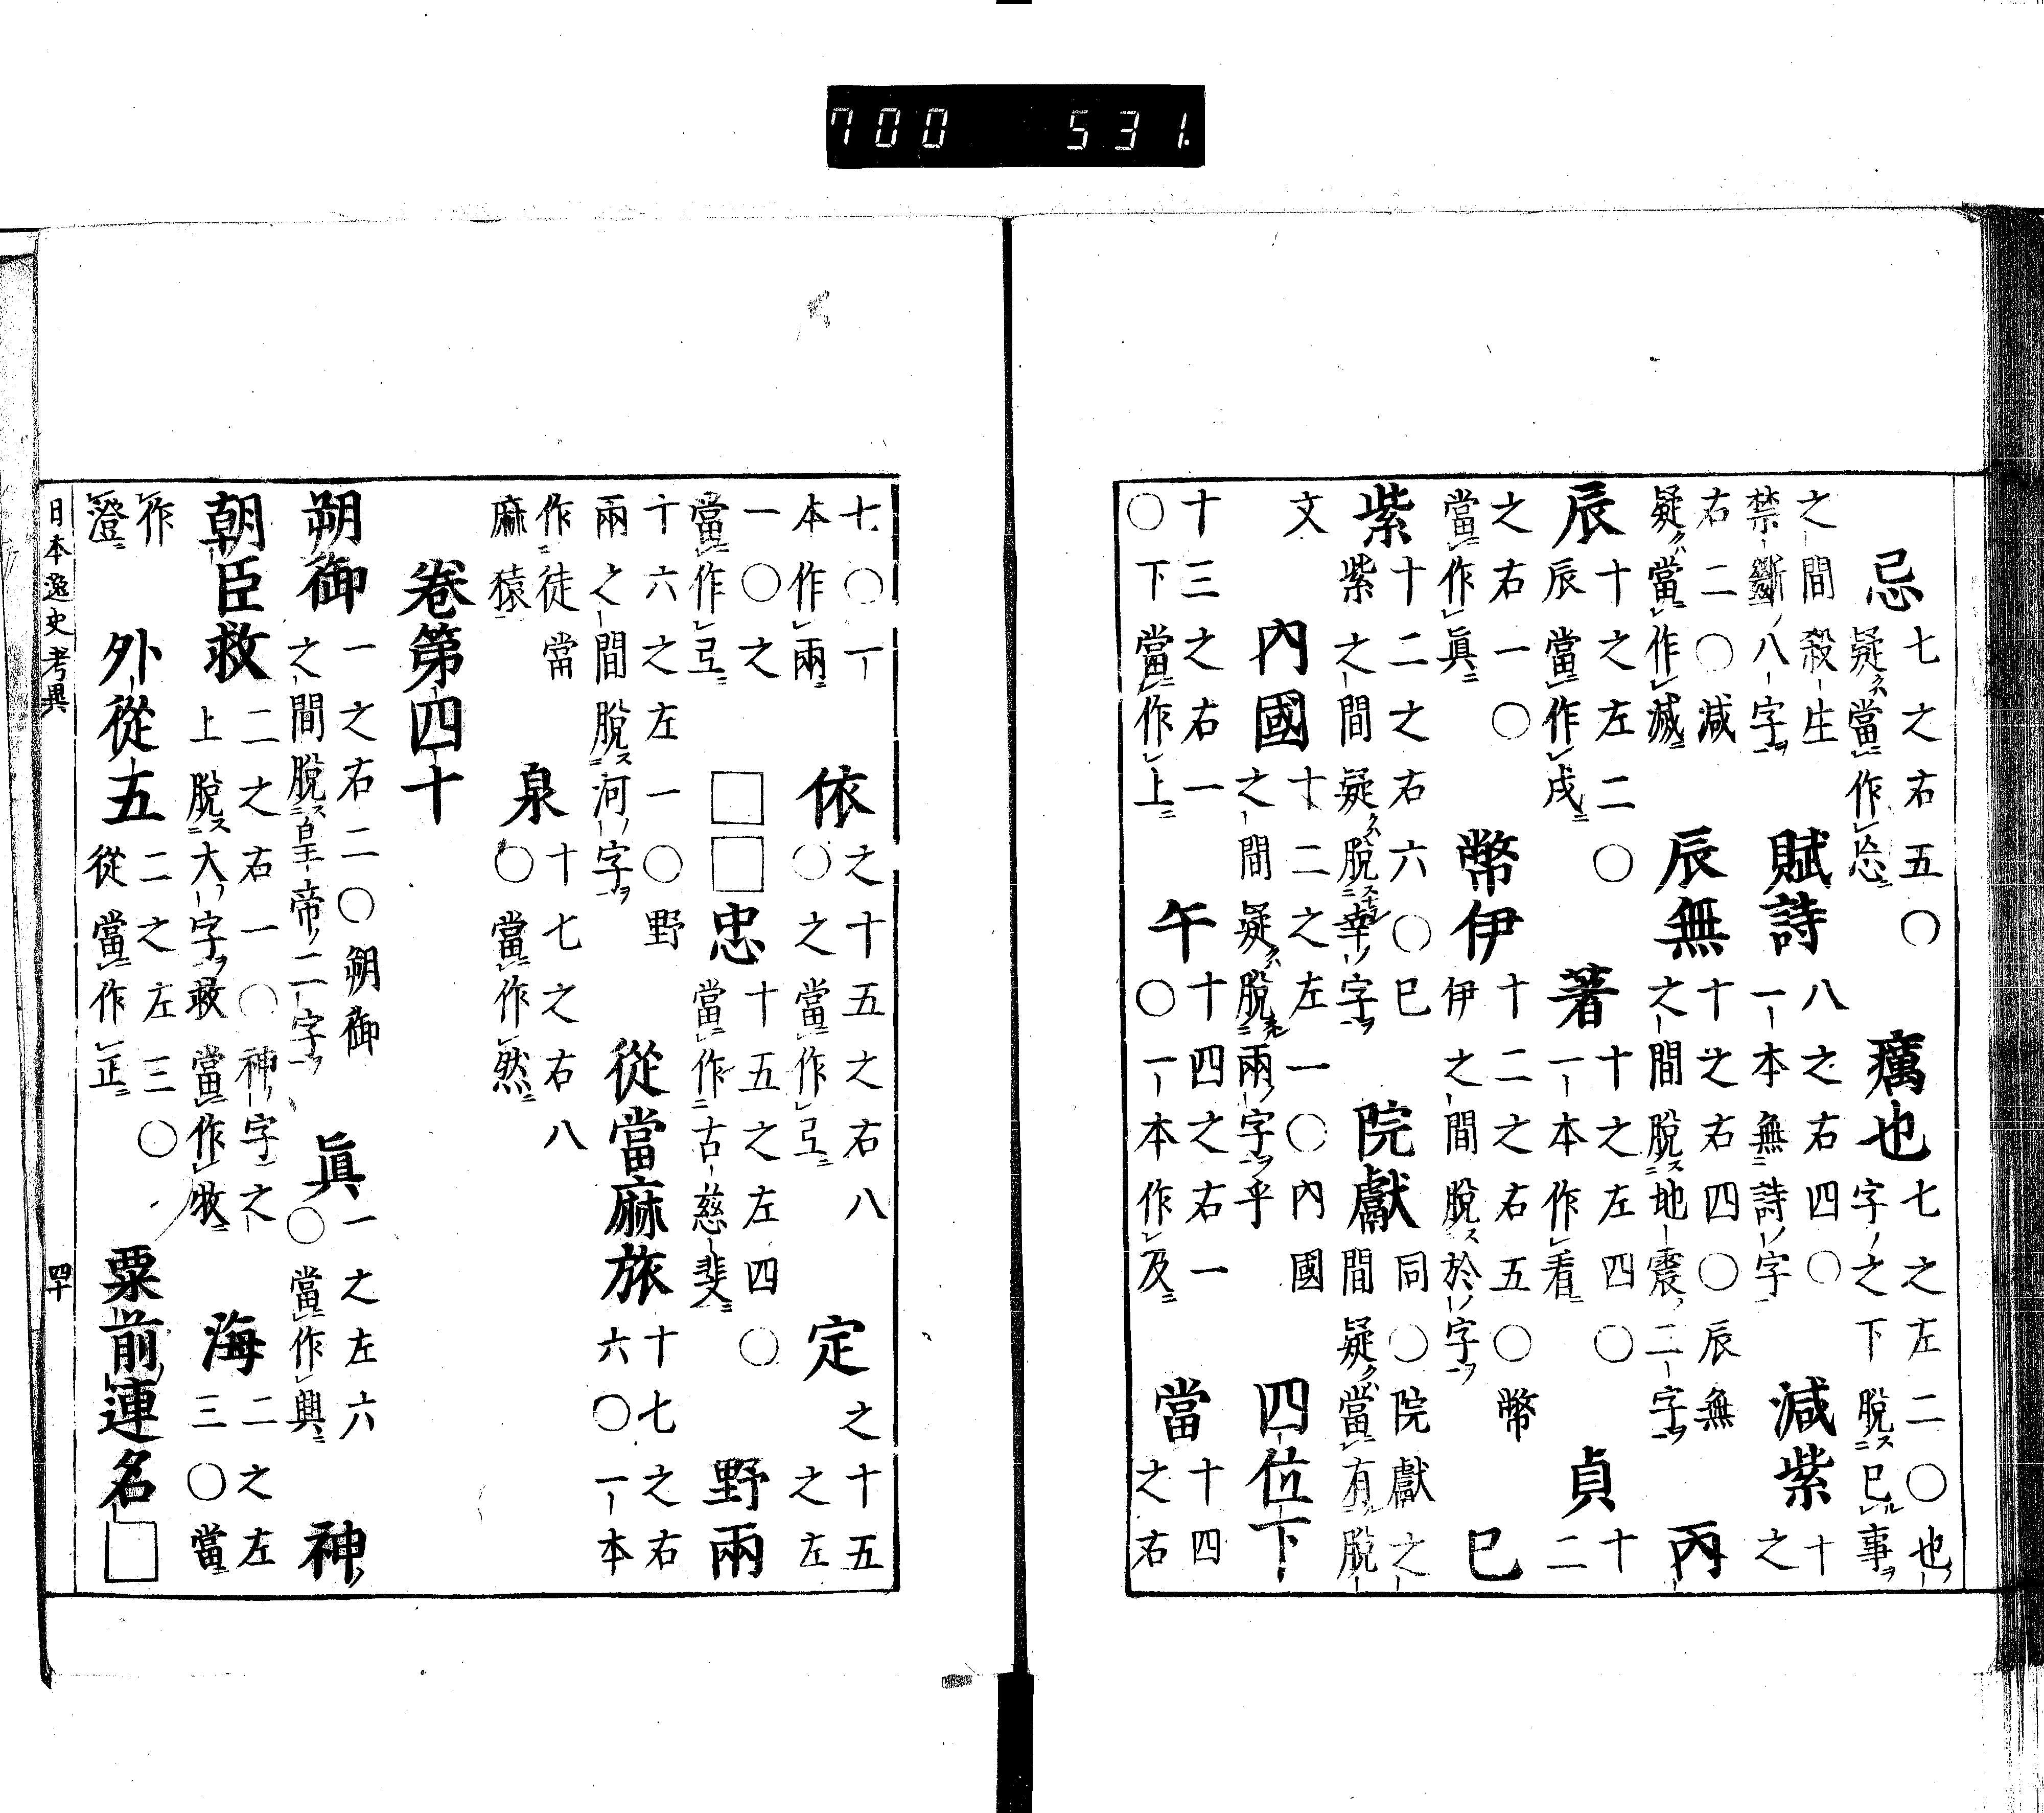 忌七之右五〇疑當作忩　癘也七之左二〇也字之下脫已事
之間殺生禁斷八字　賦詩八之右四〇一本無詩字　減紫十之
右二〇減疑當作滅　辰無十之右四〇辰無之間脫地震二字　丙
辰十之左二〇辰當作戌　著十之左四〇一本作看　貞十二
之右一〇當作眞　幣伊十二之右五〇幣伊之間脫於字　巳
紫十二之右六〇巳紫之間疑脫幸字　院獻同〇院獻之間疑當有脫
文　內國十二之左一〇內國之間疑脫兩字乎　四位下
十三之右一〇下當作上　午十四之右一〇一本作及　當十四之右
七〇一本作兩　依之十五之右八〇之當作弖　定之十五之左
一〇之當作弖　□□忠十五之左四〇當作古慈斐　野兩
十六之左一〇野兩之間脫河字　從當麻旅十七之右六〇一本
作徒當麻猿　泉十七之右八〇當作然
卷第四十
朔御一之右二〇朔御之間脫皇帝二字　眞一之左六〇當作興　神
朝臣救二之右一〇神字之上脫大字救當作牧　海二之左三〇當
作澄　外從五二之左三〇從當作正　粟前連名□
日本逸史考異　四十
700 531